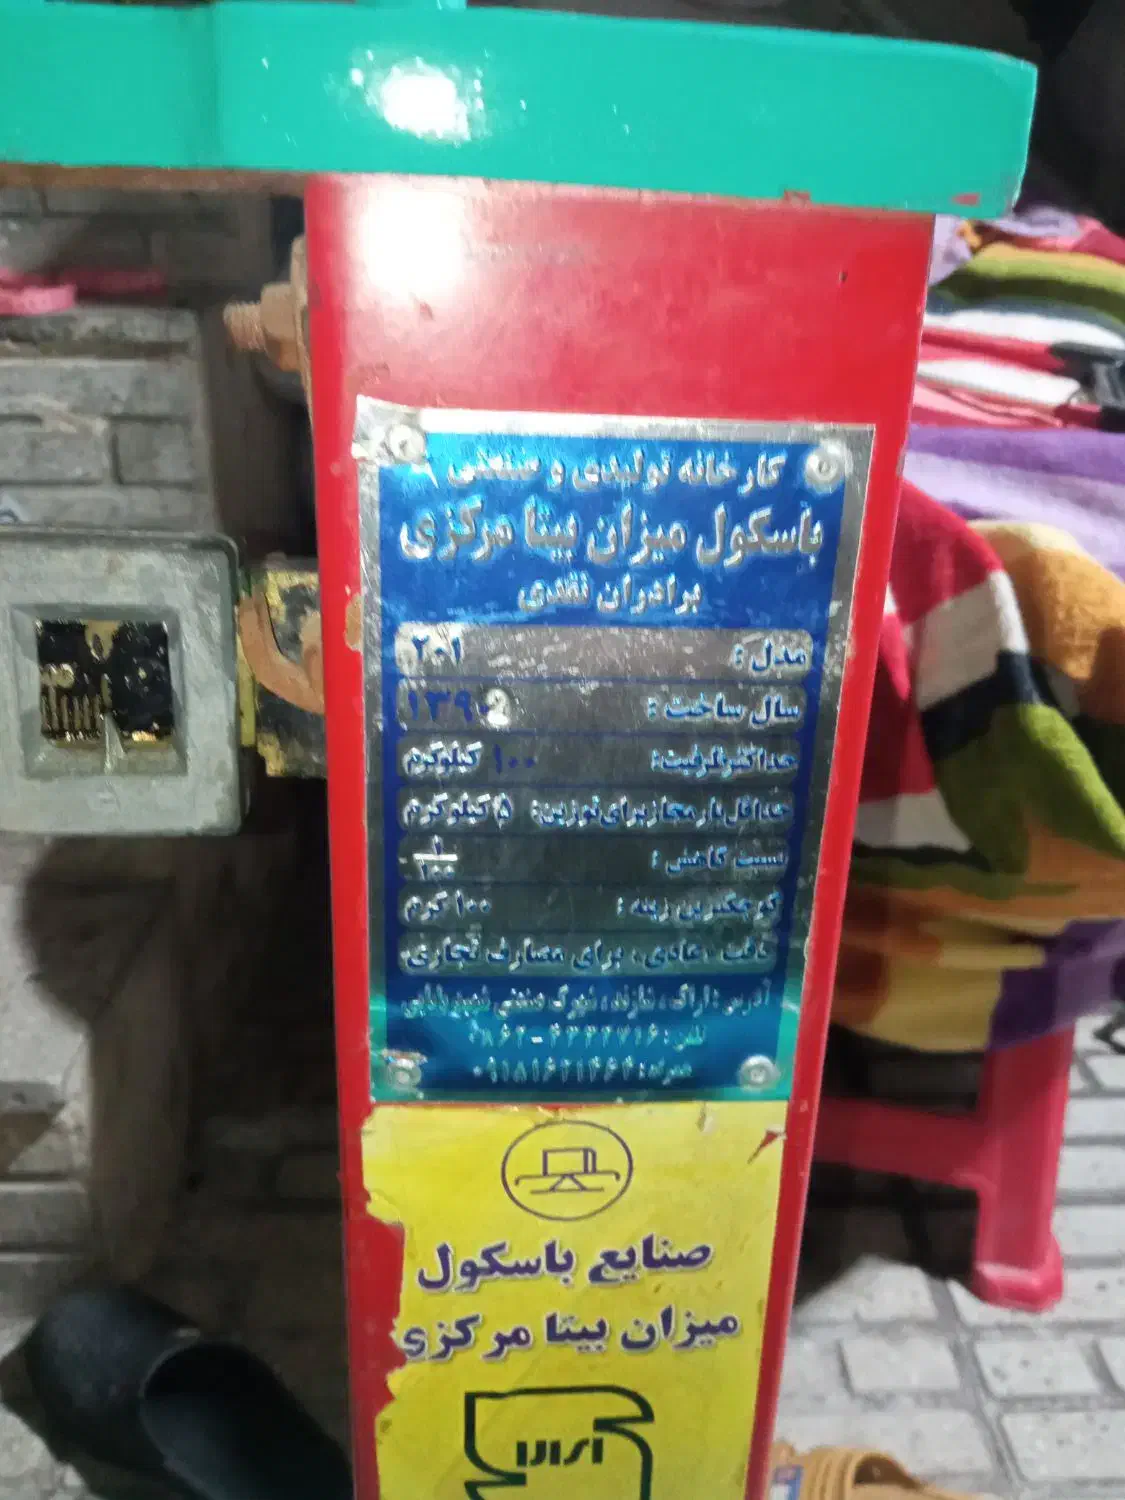 کارخانه تولیدی و صنعتی
باسکول میزان بیتا مرکزی
برادران نقدی
مدل: ۲۰۱
سال ساخت: ۱۳۹۰2
حداکثر ظرفیت: ۱۰۰ کیلوگرم
حداقل بار مجاز برای توزین: ۵ کیلوگرم
نسبت کاهش: ۱/۱۰۰
کوچکترین زینه: ۱۰۰ گرم
دقت «عادی» برای مصارف تجاری
آدرس: اراک، شهرک صنعتی
تلفن:
همراه:
صنایع باسکول
میزان بیتا مرکزی